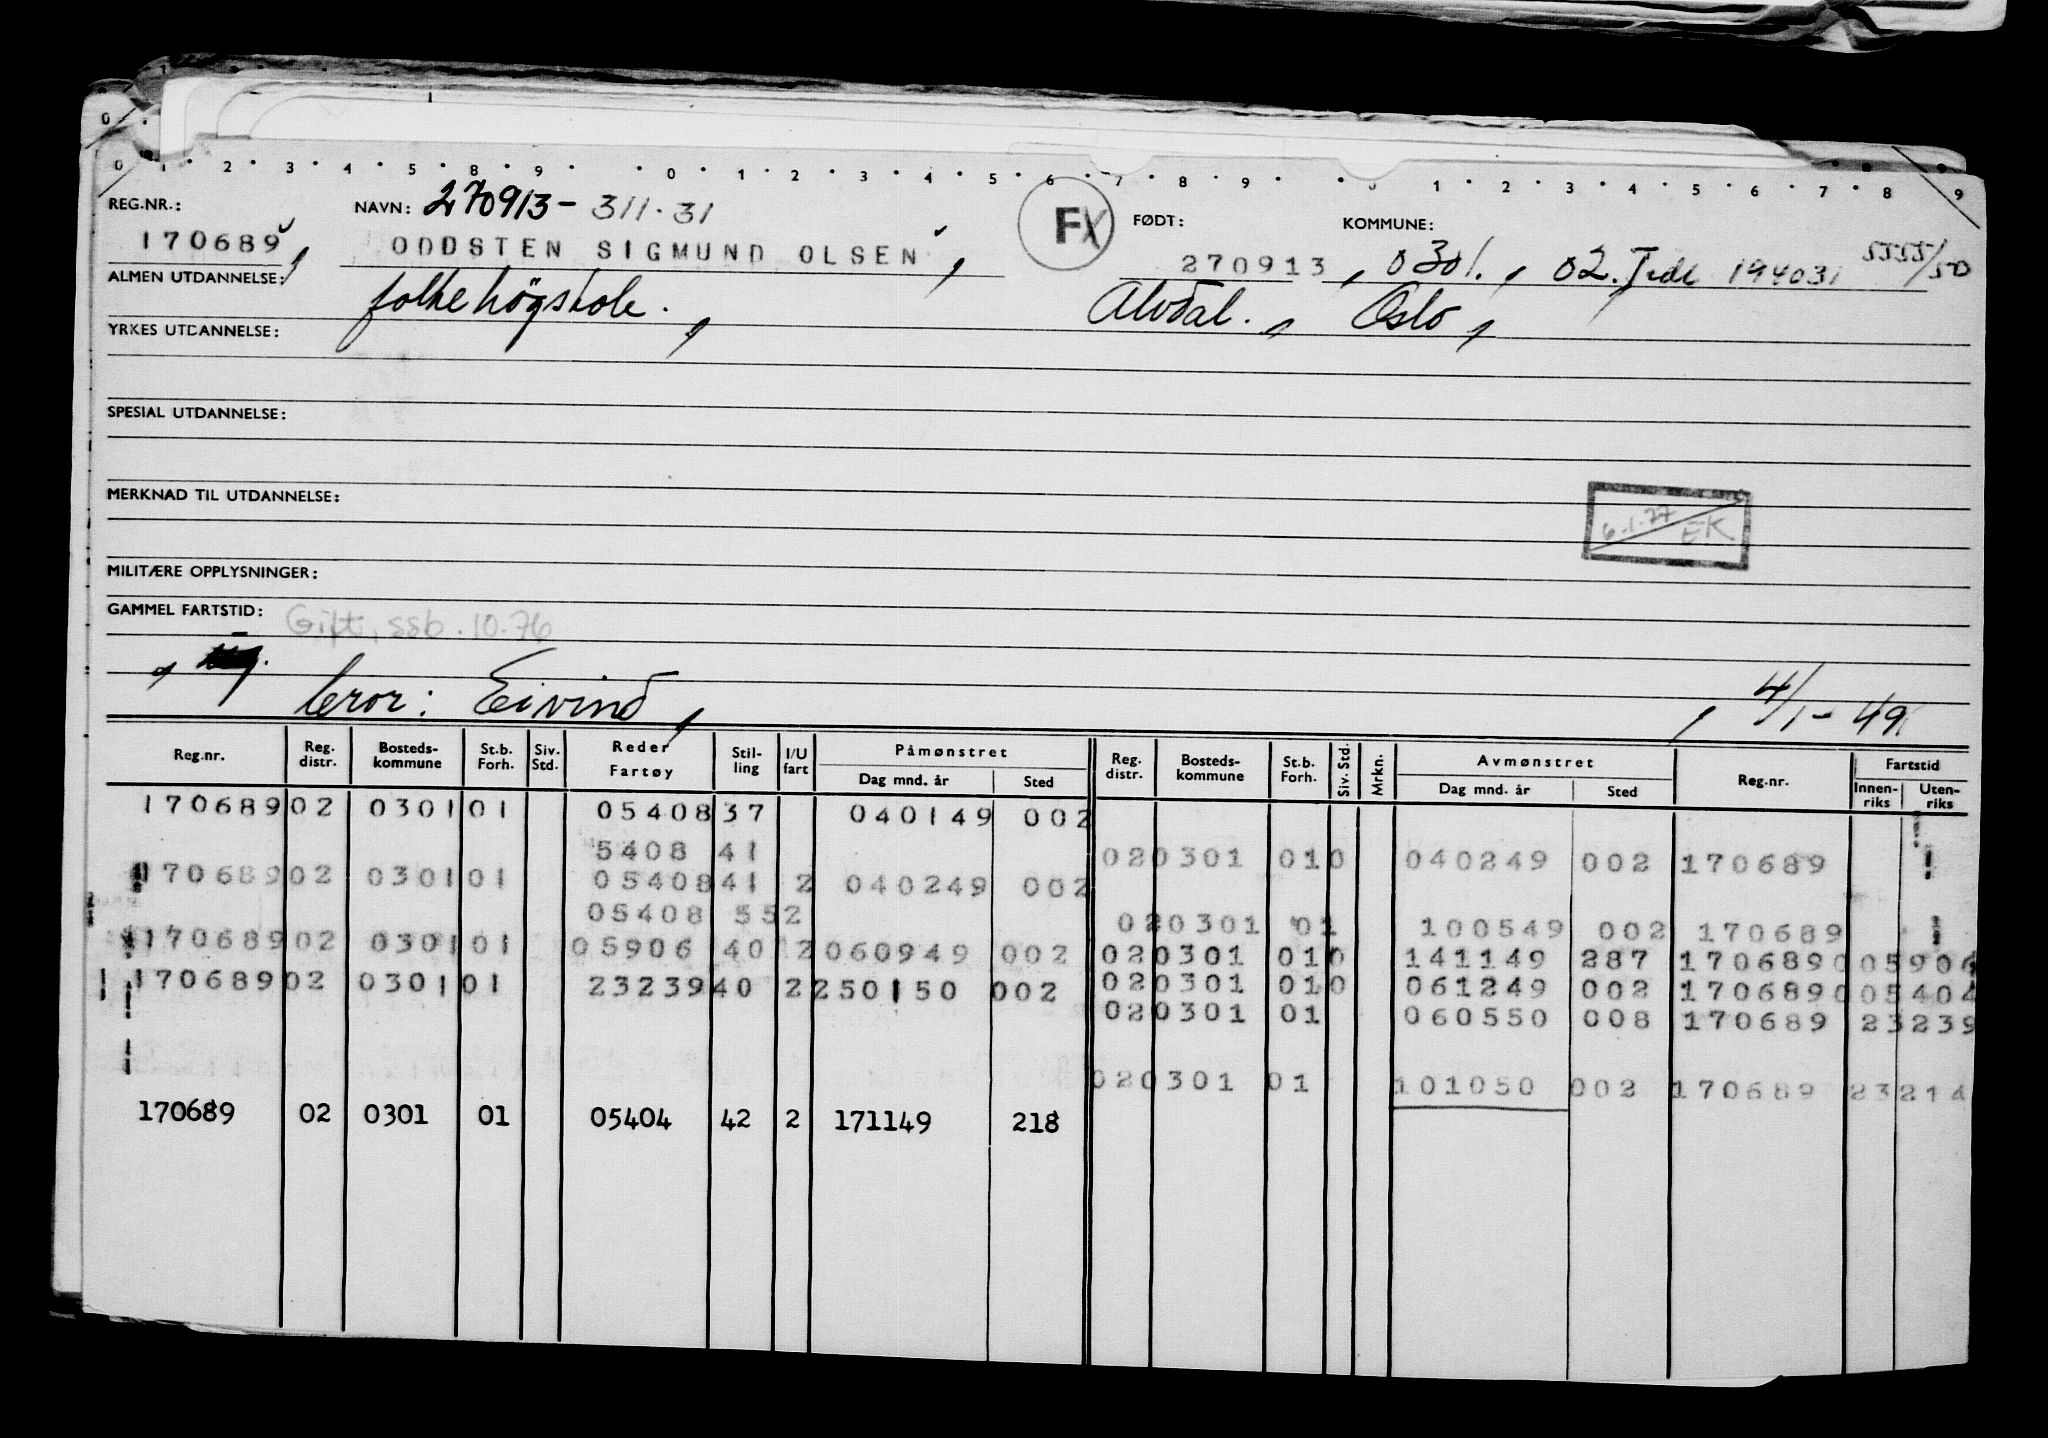 0 1 2 3 4 5 8 9 0 1 2 3 4 5 6 7 8 9 0 1 2 3 4 5 6 7 8 9
REG.NR.: NAVN: 270913- 311.31 FX FØDT: KOMMUNE:
170689 ODDSTEN SIGMUND OLSEN 270913, 0301., 02. 194031 5555/50
ALMEN UTDANNELSE: folkehögskole. Alvdal. Oslo
YRKES UTDANNELSE:
SPESIAL UTDANNELSE:
MERKNAD TIL UTDANNELSE:
6.1.77 EK
MILITÆRE OPPLYSNINGER:
GAMMEL FARTSTID: Gift, ssb. 10.76
bror: Eivind, 4/1-49
Reg.nr. Reg. distr. Bosteds-kommune St.b. Forh. Siv. Std. Reder Fartøy Stil-ling I/U fart Påmønstret Dag mnd. år Sted Reg. distr. Bosteds-kommune St.b. Forh. Siv. Std. Mrkn. Avmønstret Dag mnd. år Sted Reg.nr. Fartstid Innen-riks Uten-riks
170689 02 0301 01 05408 37 040149 002
5408 41 020301 010 040249 002 170689
170689 02 0301 01 05408 41 2 040249 002
05408 552 020301 01 100549 002 170689
170689 02 0301 01 05906 40 2 060949 002 020301 010 141149 287 170689 0 05906
170689 02 0301 01 23239 40 2 250150 002 020301 010 061249 002 170689 0 05404
020301 01 060550 008 170689 23239
020301 01 101050 002 170689 23214
170689 02 0301 01 05404 42 2 171149 218